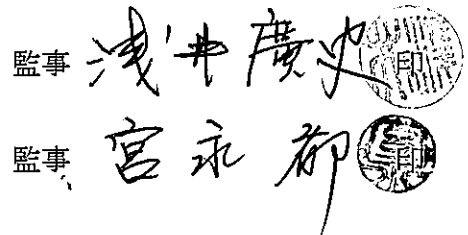 監事 浅井廣史 印
監事 宮永 都 印